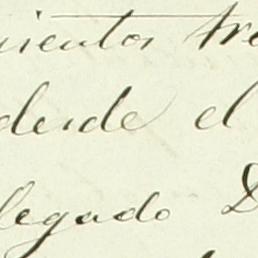 uientos tre
desde el
legado D